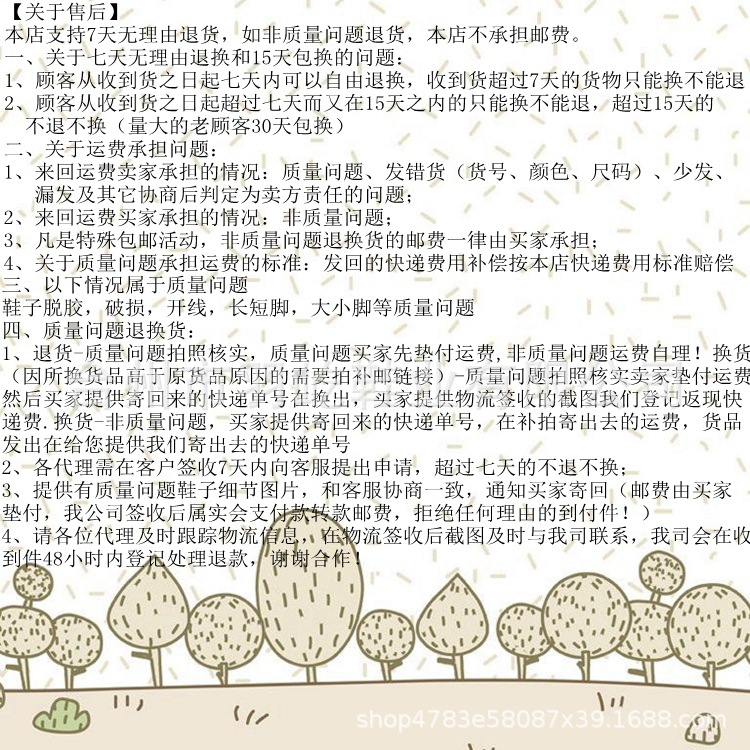 【关于售后】
本店支持7天无理由退货，如非质量问题退货，本店不承担邮费。
一、关于七天无理由退换和15天包换的问题：
1、顾客从收到货之日起七天内可以自由退换，收到货超过7天的货物只能换不能退
2、顾客从收到货之日起超过七天而又在15天之内的只能换不能退，超过15天的
不退不换（量大的老顾客30天包换）
二、关于运费承担问题：
1、来回运费卖家承担的情况：质量问题、发错货（货号、颜色、尺码）、少发、
漏发及其它协商后判定为卖方责任的问题；
2、来回运费买家承担的情况：非质量问题；
3、凡是特殊包邮活动，非质量问题退换货的邮费一律由买家承担；
4、关于质量问题承担运费的标准：发回的快递费用补偿按本店快递费用标准赔偿
三、以下情况属于质量问题
鞋子脱胶，破损，开线，长短脚，大小脚等质量问题
四、质量问题退换货：
1、退货-质量问题拍照核实，质量问题买家先垫付运费,非质量问题运费自理！换货
（因所换货品高于原货品原因的需要拍补邮链接）-质量问题拍照核实卖家垫付运费
然后买家提供寄回来的快递单号在换出，买家提供物流签收的截图我们登记返现快
递费.换货-非质量问题，买家提供寄回来的快递单号，在补拍寄出去的运费，货品
发出在给您提供我们寄出去的快递单号
2、各代理需在客户签收7天内向客服提出申请，超过七天的不退不换；
3、提供有质量问题鞋子细节图片，和客服协商一致，通知买家寄回（邮费由买家
垫付，我公司签收后属实会支付款转款邮费，拒绝任何理由的到付件！）
4、请各位代理及时跟踪物流信息，在物流签收后截图及时与我司联系，我司会在收
到件48小时内登记处理退款，谢谢合作！
shop4783e58087x39.1688.com